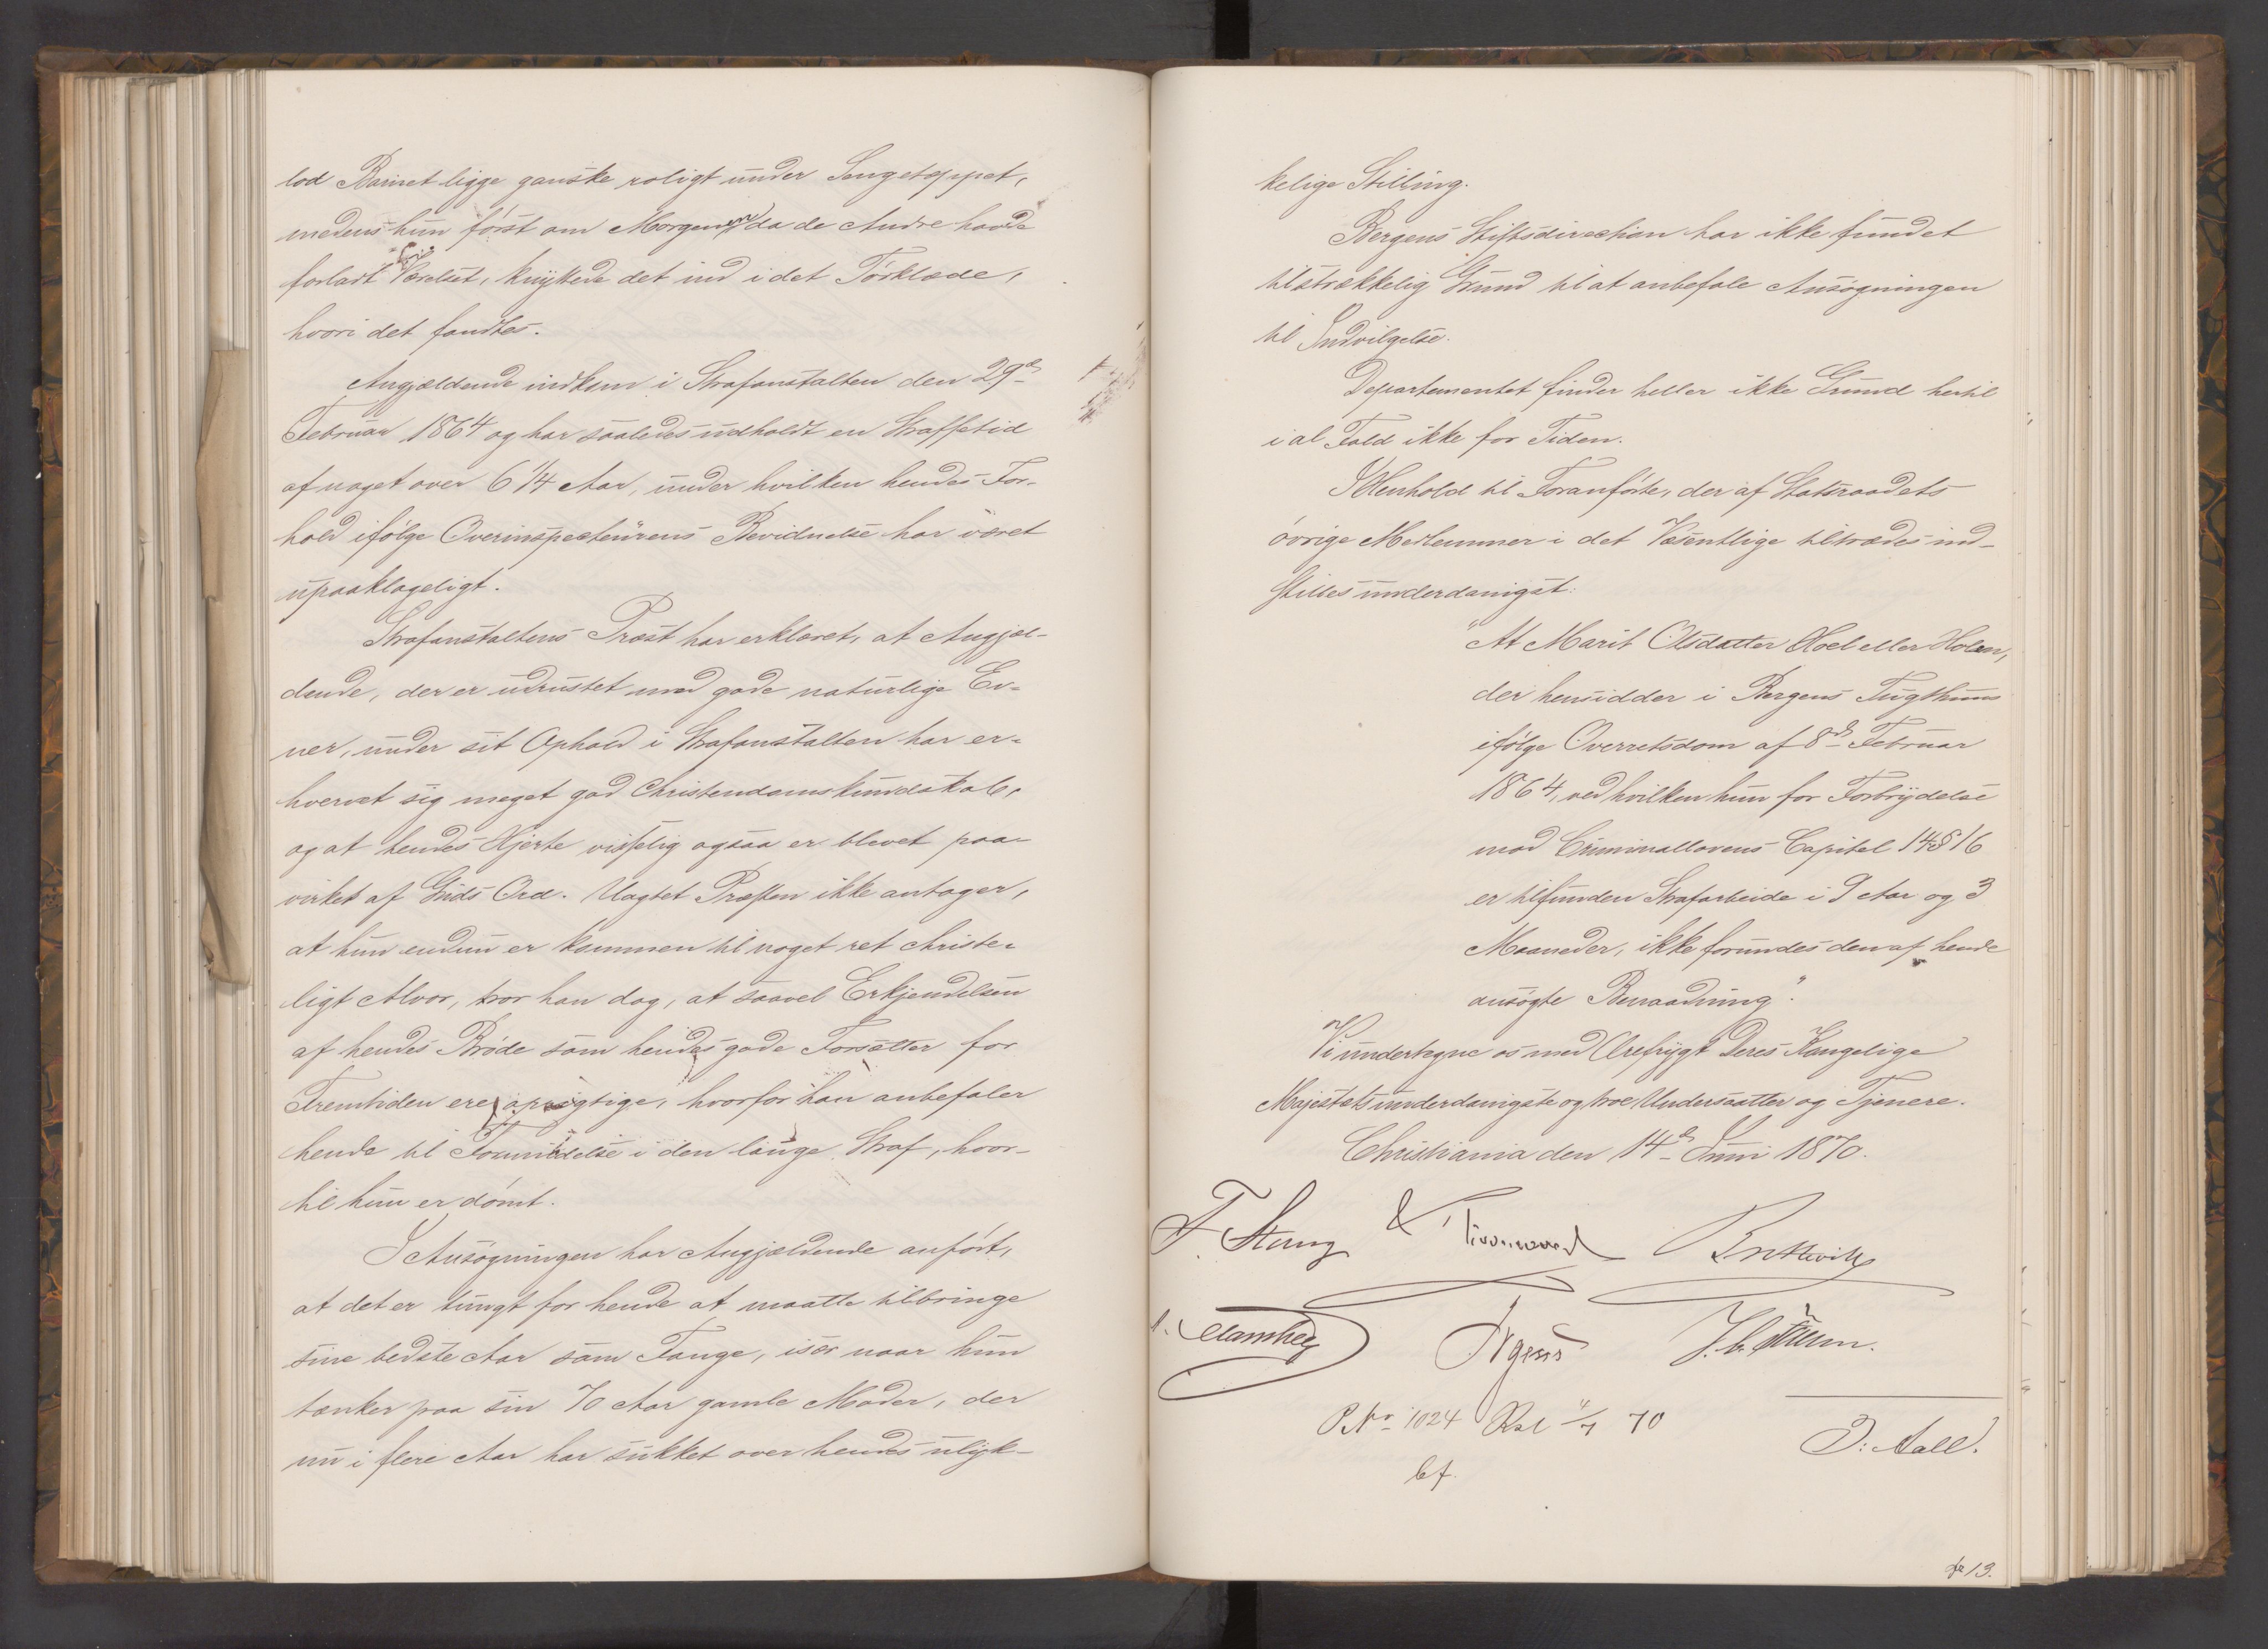 lod Barnet ligge ganske roligt under Sengetæppet,
medens hun først om Morgenen da de Andre havde
forladt Værelset, knyttede det ind i det Tørklæde,
hvori det fandtes.
Angjældende indkom i Strafanstalten den 29de
Februar 1864 og har saaledes udholdt en Straffetid
af noget over 6 1/4 Aar, under hvilken hendes For-
hold ifølge Overinspecteurens Bevidnelse har været
upaaklageligt.
Strafanstaltens Præst har erklæret, at Angjæl-
dende, der er udrustet med gode naturlige Ev-
ner, under sit Ophold i Strafanstalten har er-
hvervet sig meget god Christendomskundskab,
og at hendes Hjerte visselig ogsaa er blevet paa-
virket af Guds Ord. Uagtet Præsten ikke antager,
at hun endnu er kommen til noget ret christe-
ligt Alvor, tror han dog, at saavel Erkjendelsen
af hendes Brøde som hendes gode Forsætter for
Fremtiden ere oprigtige, hvorfor han anbefaler
hende til Formildelse i den lange Straf, hvor-
til hun er dømt.
I Ansøgningen har Angjældende anført,
at det er tungt for hende at maatte tilbringe
sine bedste Aar som Fange, især naar hun
tænker paa sin 70 Aar gamle Moder, der
nu i flere Aar har sukket over hendes ulyk-
kelige Stilling.
Bergens Stiftsdirection har ikke fundet
tilstrækkelig Grund til at anbefale Ansøgningen
til Indvilgelse.
Departementet finder heller ikke Grund hertil
i al Fald ikke for Tiden.
I Henhold til Foranførte, der af Statsraadets
øvrige Medlemmer i det Væsentlige tiltrædes ind-
stilles underdanigst:
"At Marit Olsdatter Hoel eller Holen,
der hensidder i Bergens Tugthuus
ifølge Overretsdom af 8de Februar
1864, ved hvilken hun for Forbrydelse
mod Criminallovens Capitel 14 § 16
er tilfunden Strafarbeide i 9 Aar og 3
Maaneder, ikke forundes den af hende
ansøgte Benaadning".
Vi undertegne os med Ærefrygt Deres Kongelige
Majestæts underdanigste og troe Undersaatter og Tjenere.
Christiania den 14de Juni 1870.
F. Stang Bretteville
Manthey
P. No 1024 70
bf.
J: Aall.
13.